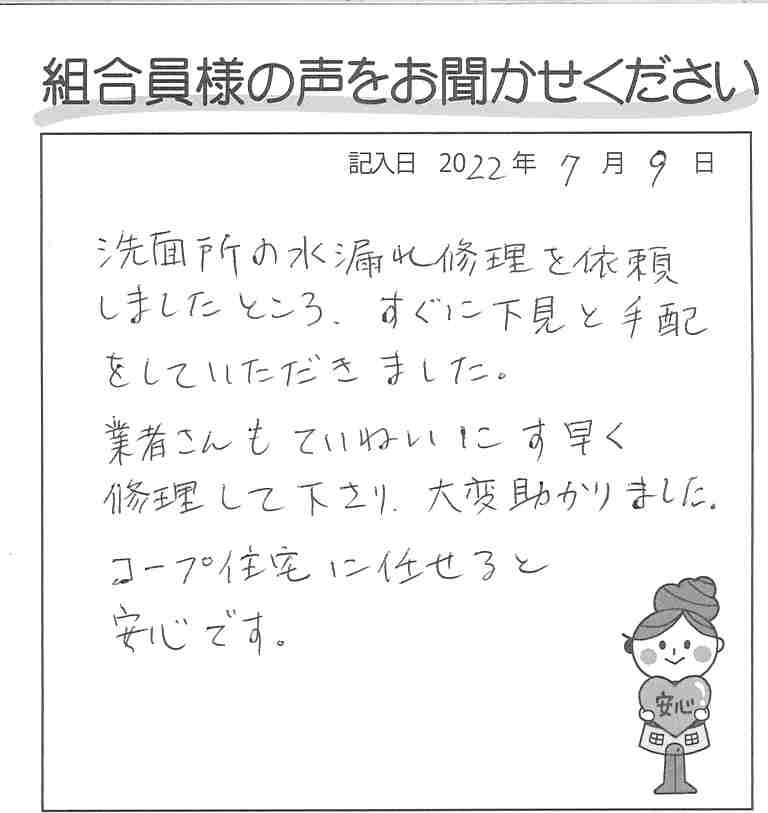 組合員様の声をお聞かせください
記入日 2022年 7月 9日
洗面所の水漏れ修理を依頼
しましたところ、すぐに下見と手配
をしていただきました。
業者さんもていねいにす早く
修理して下さり、大変助かりました。
コープ住宅に任せると
安心です。
安心